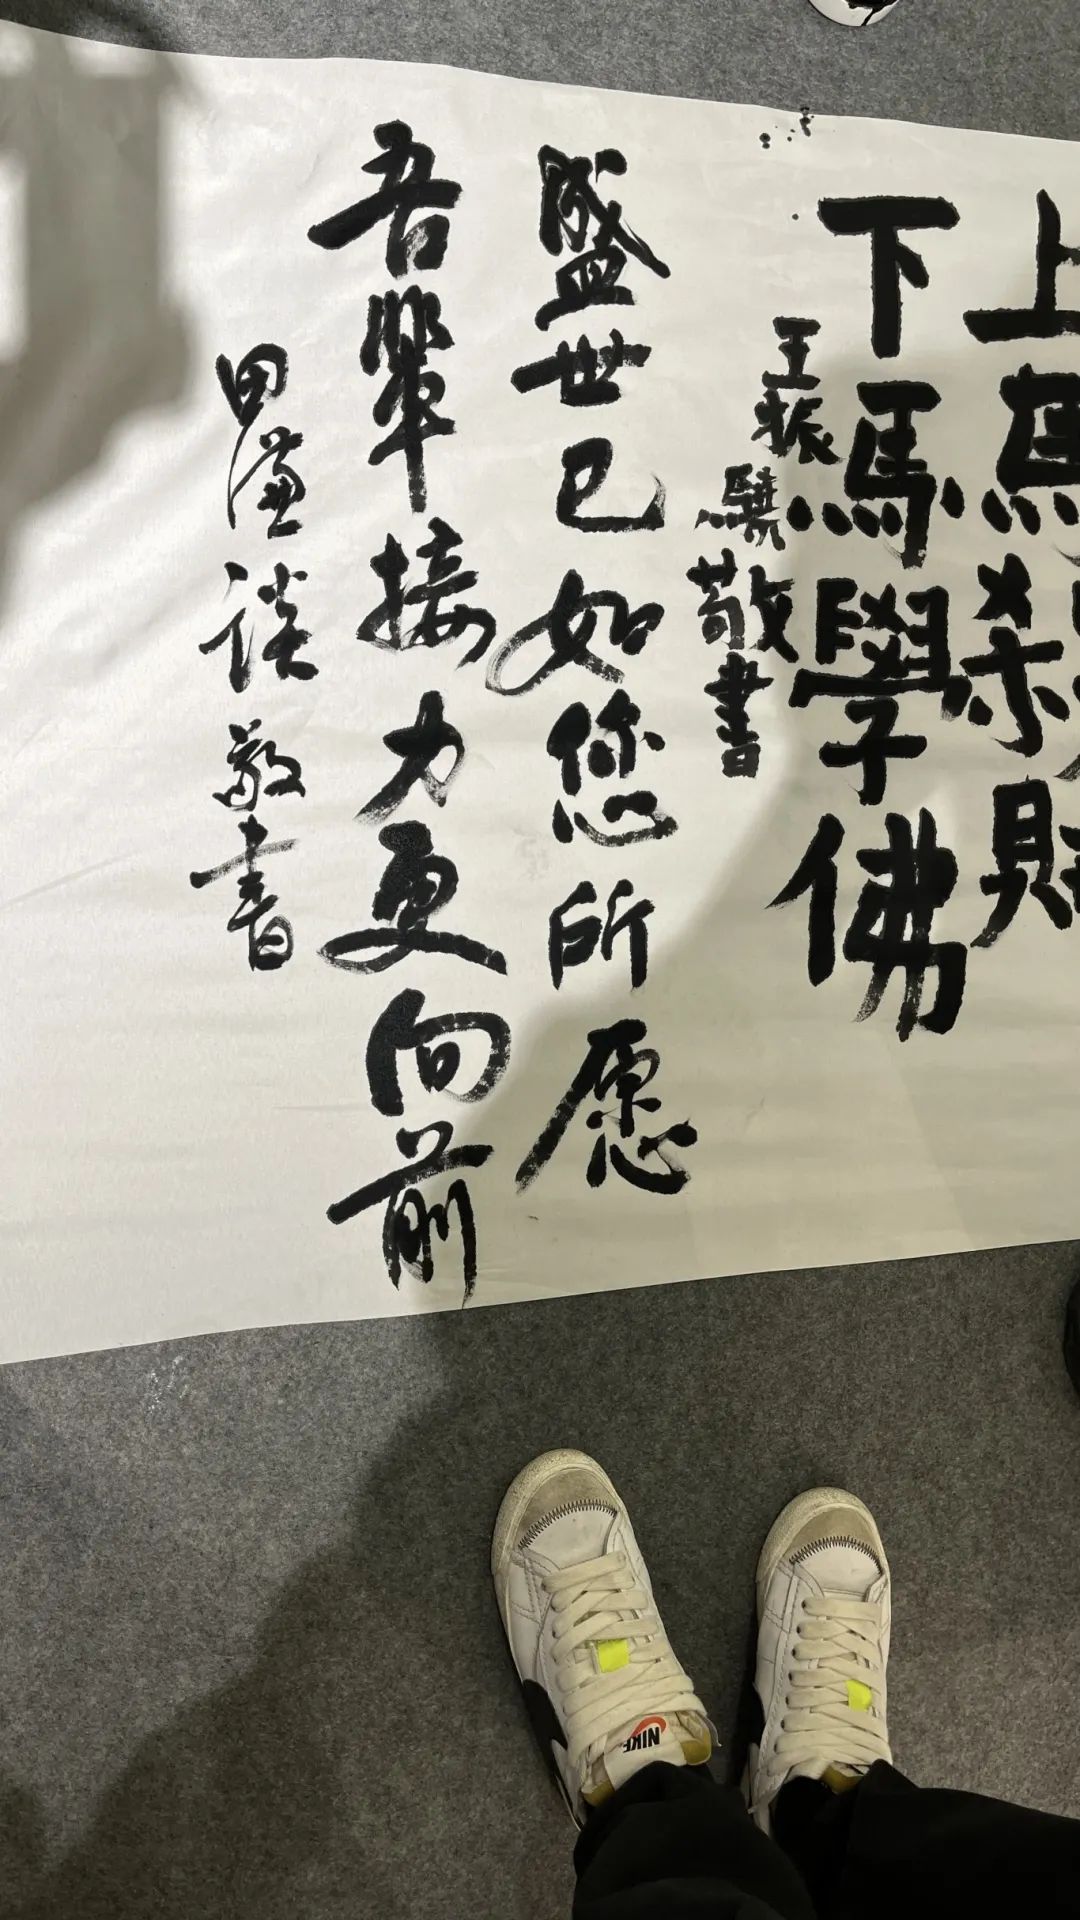 上馬杀賊
下馬學佛
王振驥敬書
盛世已如您所愿
吾辈接力更向前
田谦谈敬書
NIKE